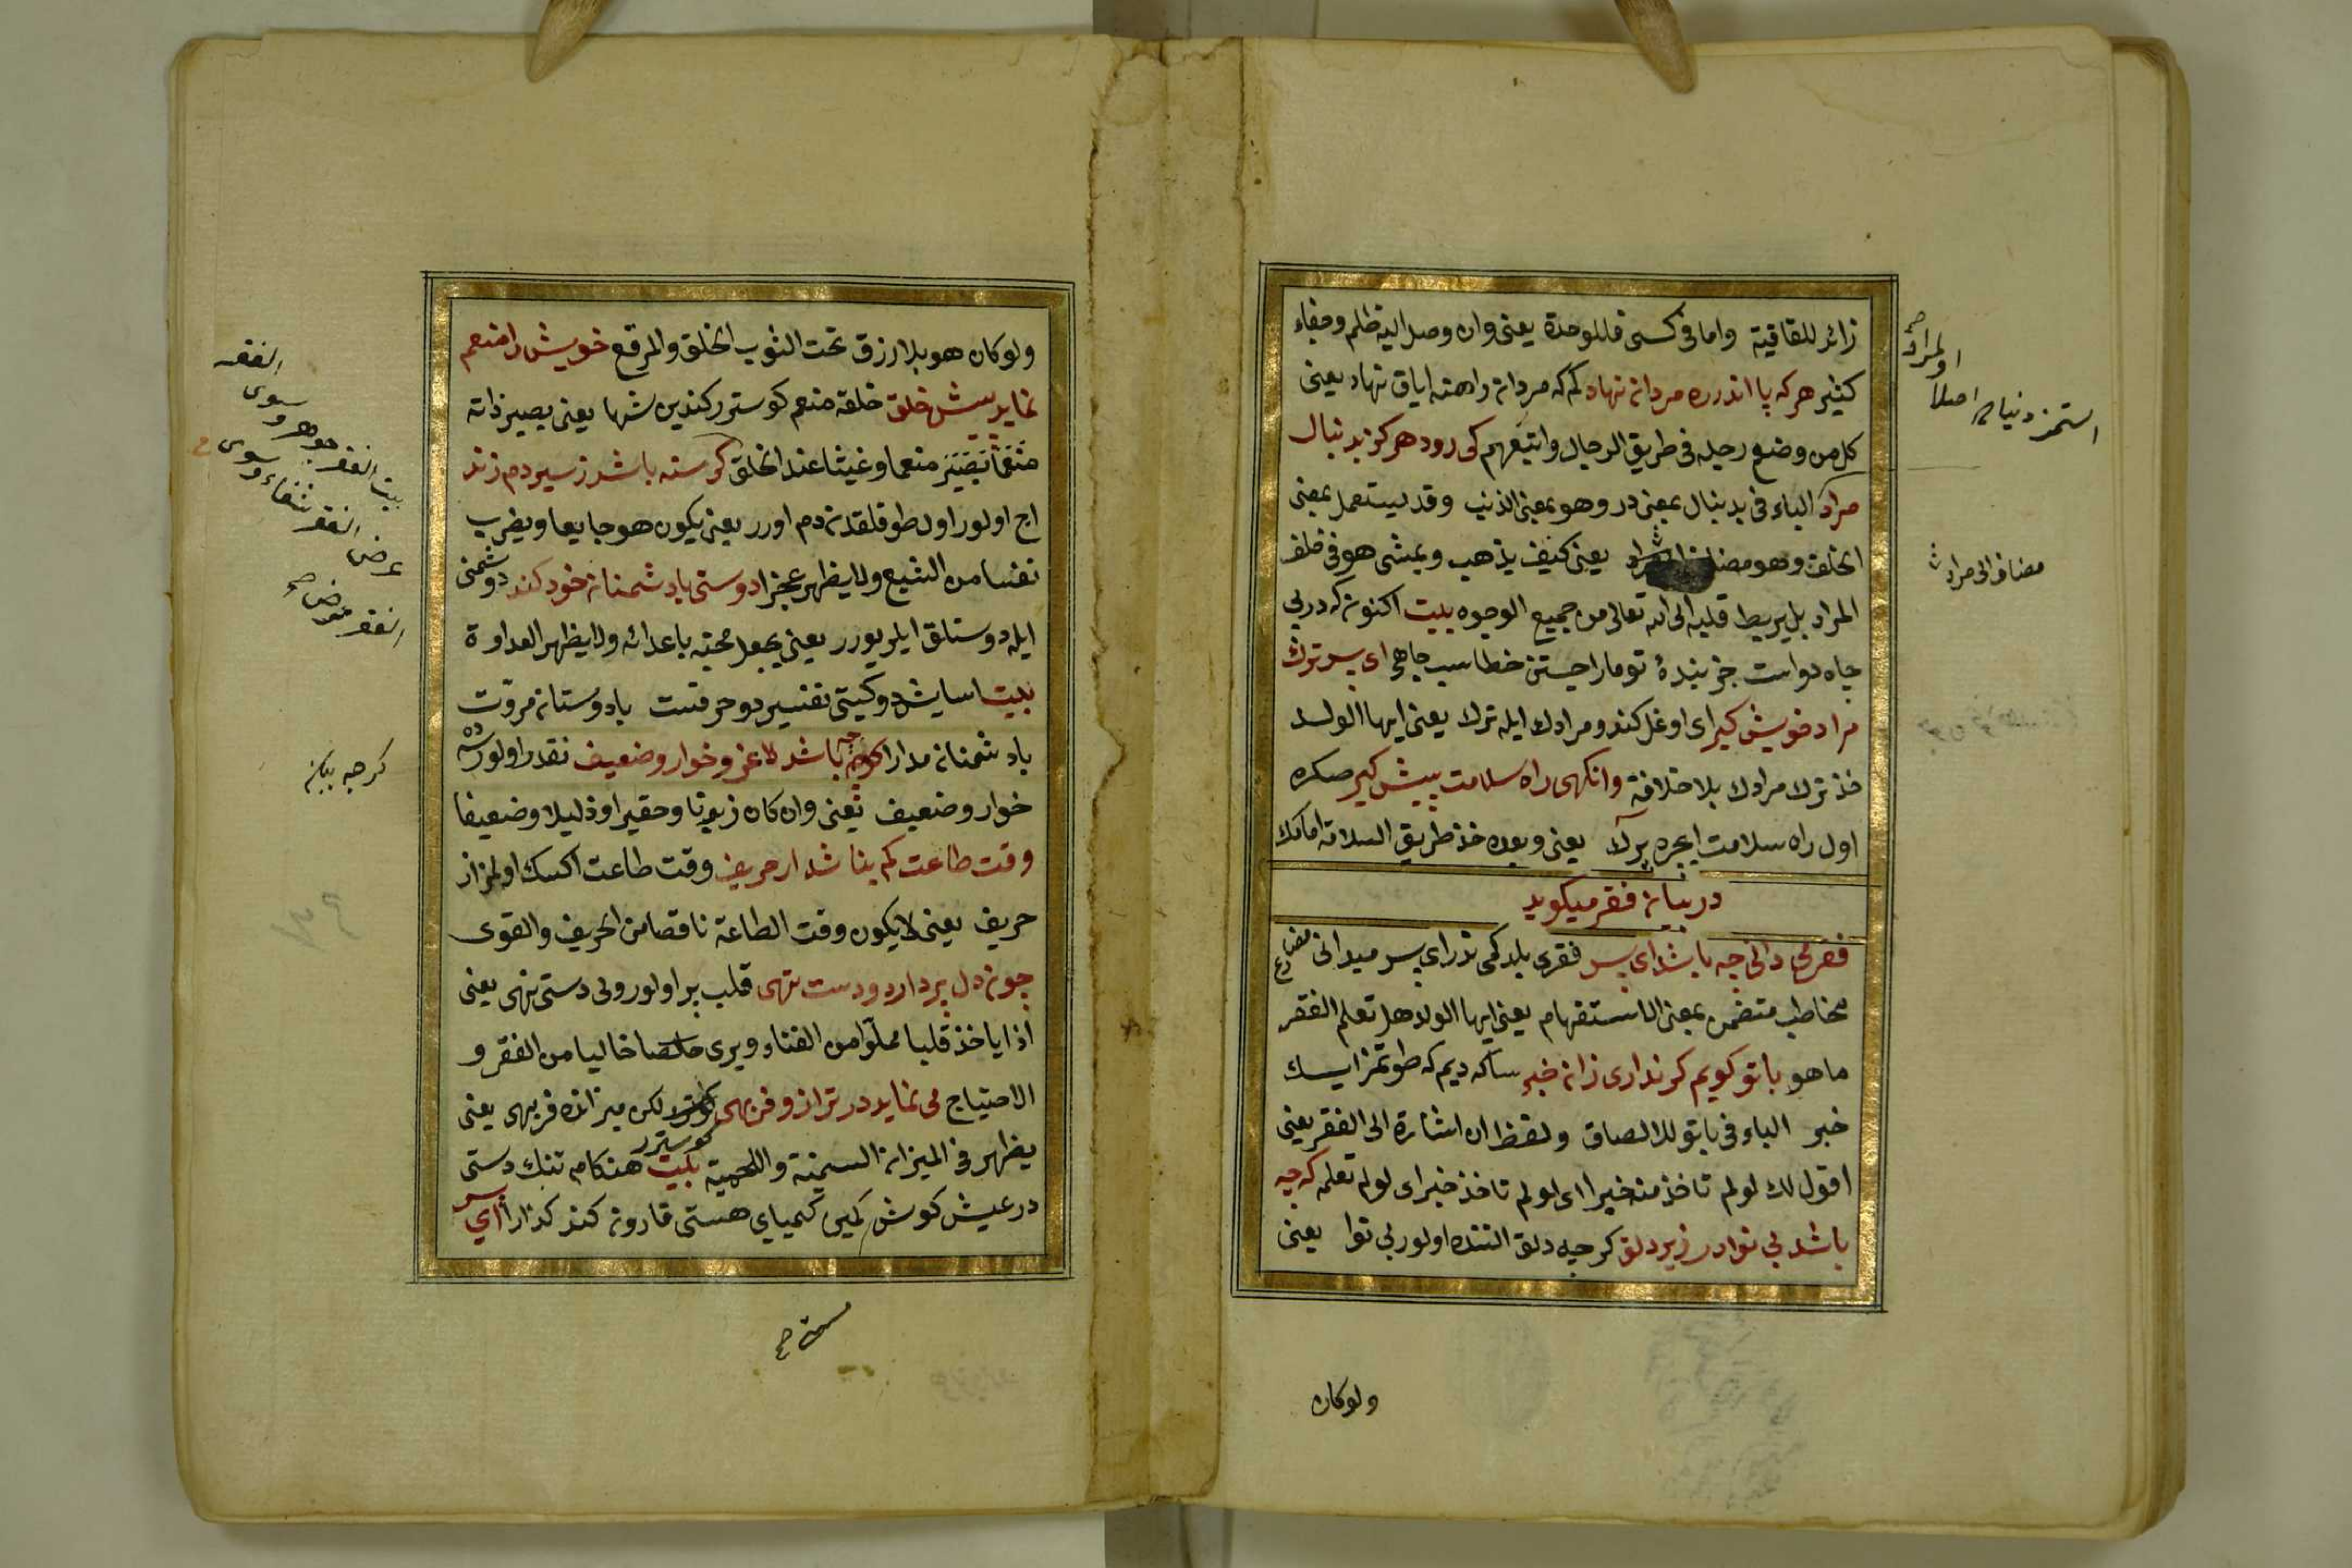 زائر للقافية واما فى كسى فللوحدة يعنى وان وصل اليه ظلم وجفاء
كثير هركه پا اندر ره مردانه نهاد كم كه مردانه راهنه اياق نهاد يعنى
كل من وضع رجله فى طريق الرجال واتبعهم كى رود هركز بدنبال
مراد الباء فى بدنبال بمعنى در وهو بمعنى الذنب وقد يستعمل بمعنى
الخلف وهو مضاف يعنى كيف يذهب ويمشى هو فى خلف
المراد بل يربط قلبه الى الله تعالى من جميع الوجوه بيت اكنونكه در پى
جاه دواست جز بندۀ تو مارا جستن خطاست جاهى اى پسر ترك
مراد خويش كير اى اوغل كندو مرادك ايله ترك يعنى ايها الولد
خذ ترك مرادك بلا خلافة وانكهى راه سلامت پيش كير صكره
اول راه سلامت ايچره يرآلا يعنى وبعده خذ طريق السلامة امامك
در بيان فقر ميكويد
فقر مى دانى چه باشد اى پسر فقرى بلدكمى ندر اى پسر ميدانى مضارع
مخاطب متضمن بمعنى الاستفهام يعنى ايها الولد هل تعلم الفقر
ما هو با تو كويم كر ندارى زان خبر سكا ديم كه طوتمز ايسك
خبر الباء فى باتو للالصاق ولفظ ان اشارة الى الفقر يعنى
اقول لك لو لم تاخذ منه خبرا اى لو لم تاخذ خبر اى لو لم تعلمه كرچه
باشد بى نوا در زير دلق كرچه دلق التنده اولور بى نوا يعنى
ولوكان
مضاف الى مراد
ولوكان هو بلا رزق تحت الثوب الخلق والمرقع خويش را منعم
نمايد پيش خلق خلقه منعم كوسترر كندين شها يعنى يصير ذاته
منعما وغنيا عند الخلق كرسنه باشد ز سيرى دم زند
اج اولور اول طوقلقدن دم اورر يعنى يكون هو جايعا ويضرب
نفسا من الشبع ولا يظهر عجزا دوستى با دشمنان خود كند دوشمنى
ايله دوستلق ايلر يورر يعنى يجعل محبته باعدائه ولا يظهر العداوة
بيت اسايش دو كيتى تفسير دو حرفست با دوستان مروت
با دشمنان مدارا كرچه باشد لاغر و خوار وضعيف نقدر اولورسه
خوار وضعيف يعنى وان كان زبونا وحقيرا وذليلا وضعيفا
وقت طاعت كم نباشد از حريف وقت طاعت اكسك اولمز از
حريف يعنى لا يكون وقت الطاعة ناقصا من الحريف والقوى
چون دل پر دارد و دست تهى قلب پر اولور ولى دستى تهى يعنى
اذا ياخذ قلبا مملوا من الغناء ويرى خاليا من الفقر و
الاحتياج مى نمايد در ترازو فربهى لكن ميزانده فربهى يعنى
يظهر فى الميزان السمينة واللحمية بيت هنكام تنك دستى
در عيش كوش كين كيمياى هستى قارون كند كدارا اى پسر